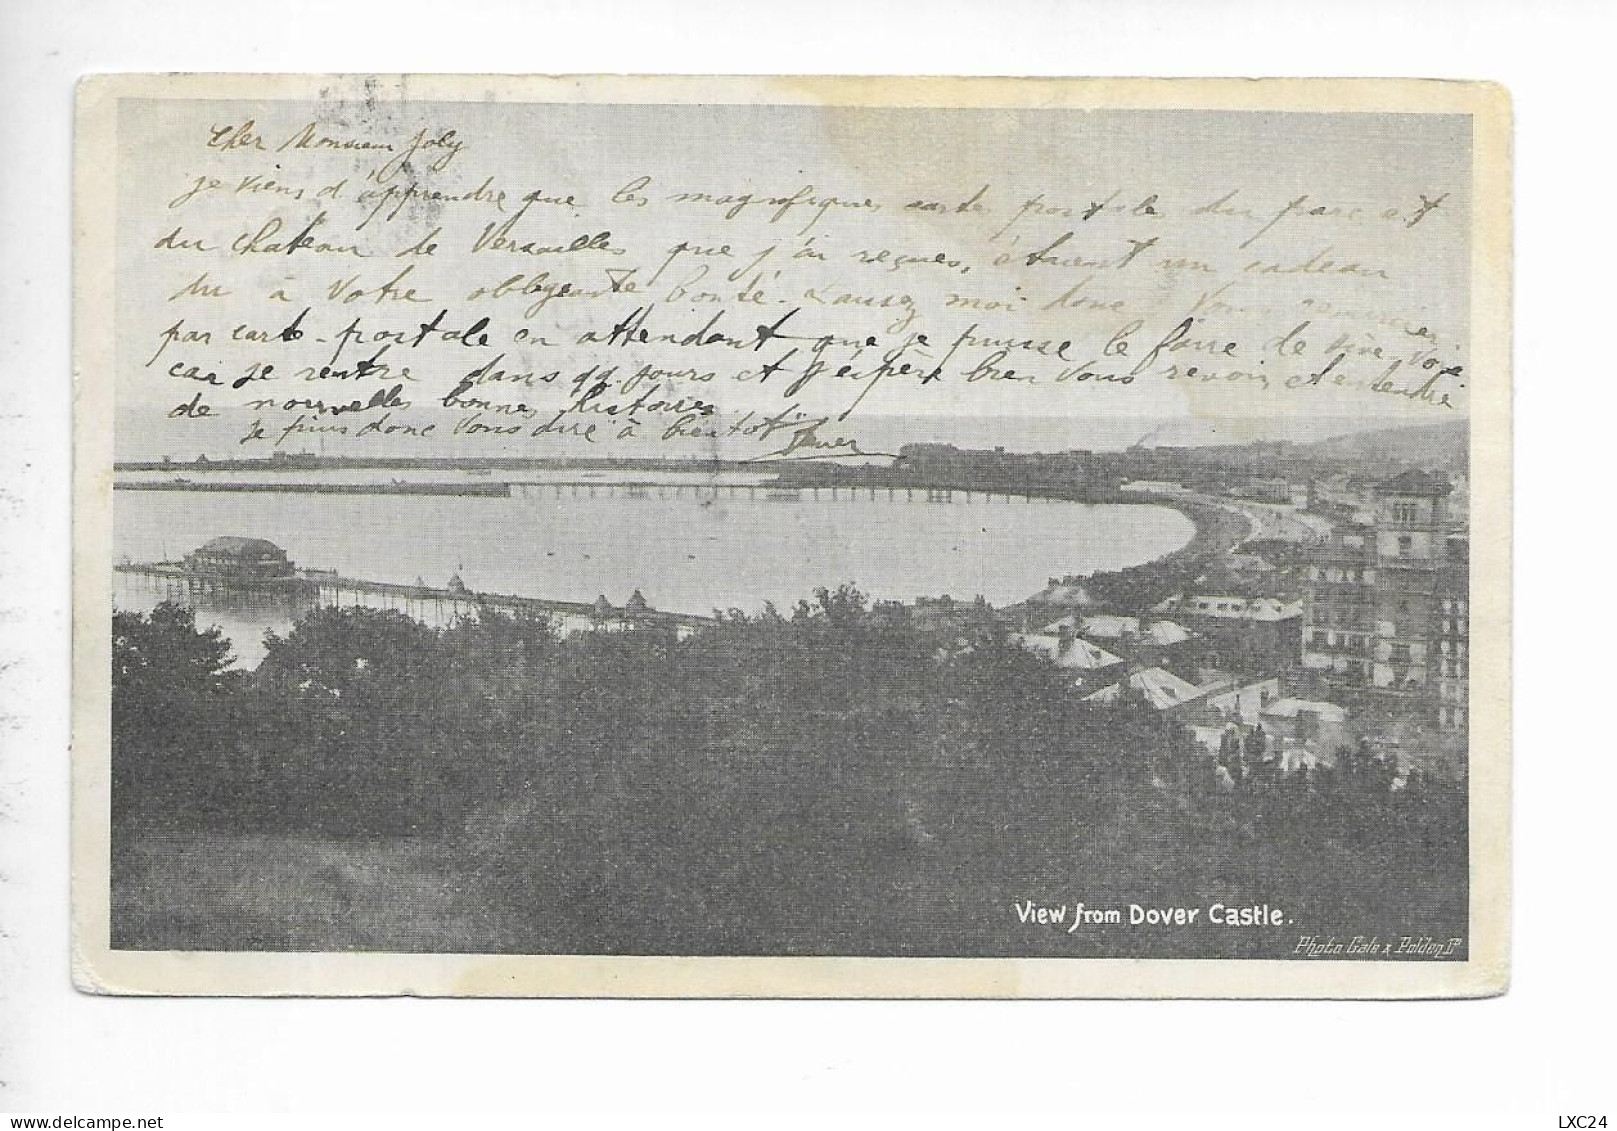 Cher Monsieur Joly
je viens d'apprendre que les magnifiques cartes postales du parc et
du chateau de Versailles que j'ai reçues, étaient un cadeau
du à votre obligeante bonté. Laissez moi donc Vous remercier
par carte-postale en attendant que je puisse le faire de vive voix
car je rentre dans qq. jours et j'éspère bien Vous revoir et entendre
de nouvelles bonnes histoires.
je puis donc Vous dire à bientôt
View from Dover Castle.
Photo Gale & Polden Ld
LXC24